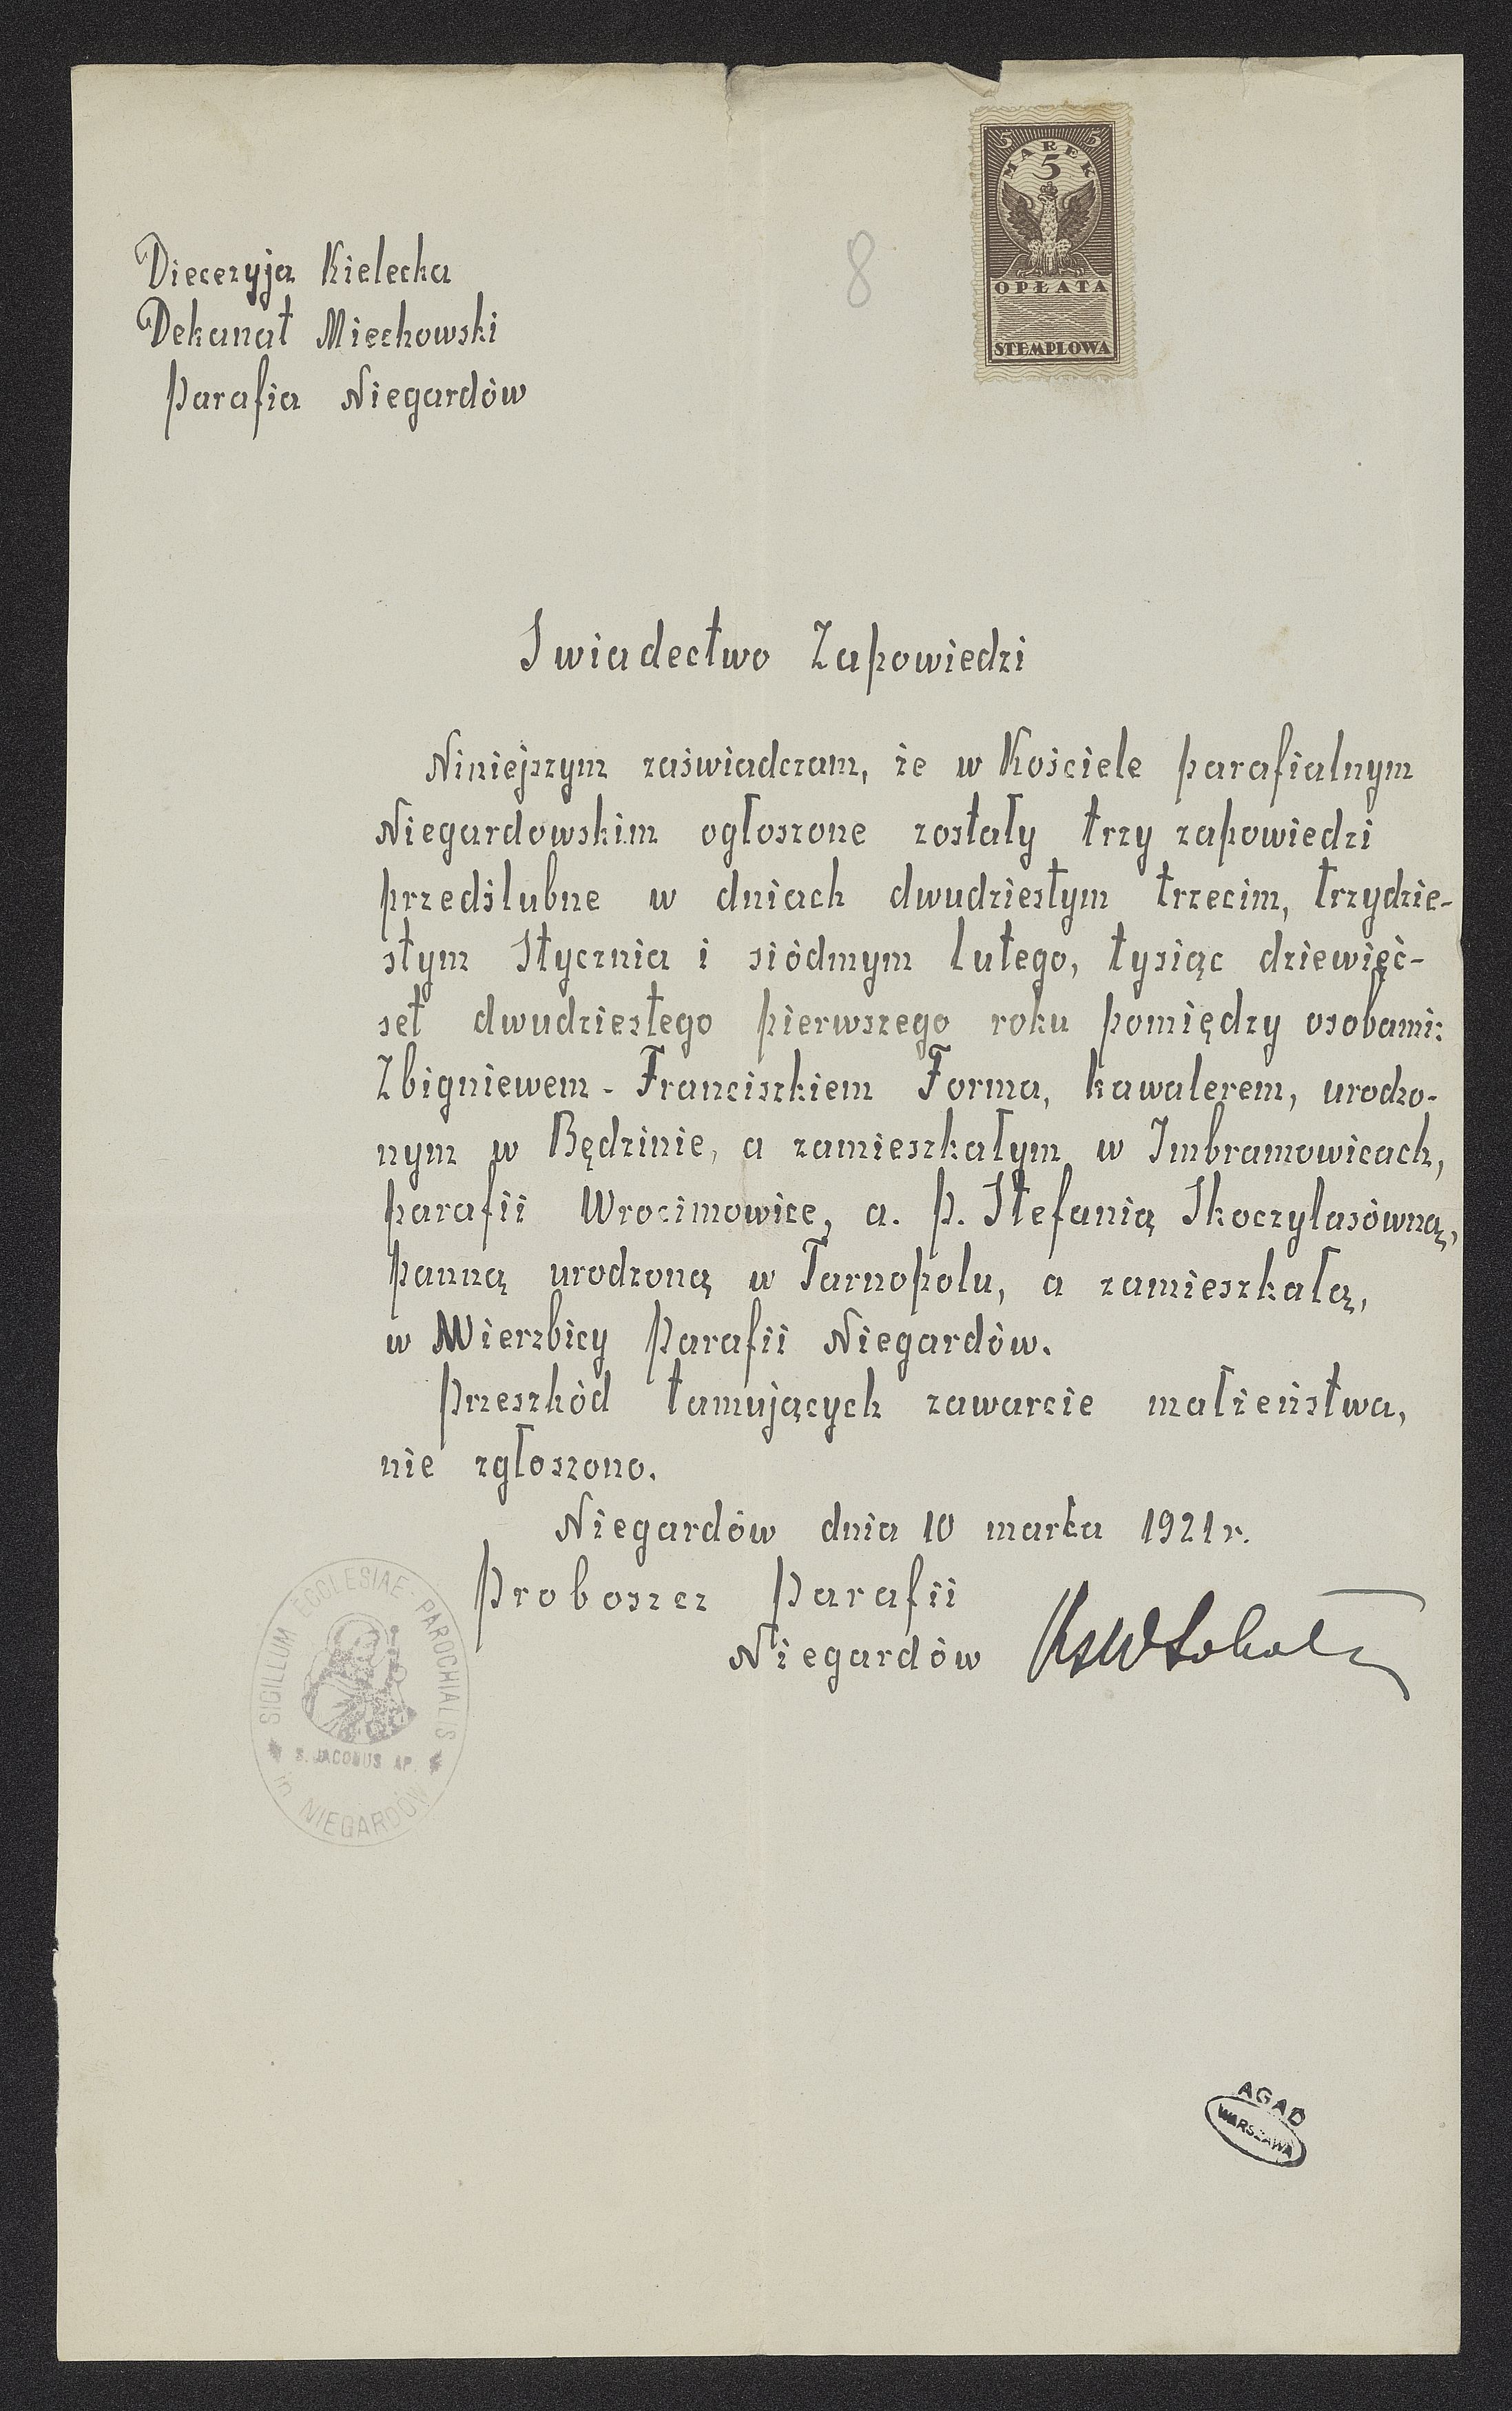 5 5
MAREK
5
OPŁATA
STEMPLOWA
8
Diecezyja Kielecka
Dekanat Miechowski
Parafia Niegardów
Swiadectwo Zapowiedzi
Niniejszym zaświadczam, że w Kościele parafialnym
Niegardowskim ogłoszone zostały trzy zapowiedzi
przedślubne w dniach dwudziestym trzecim, trzydzie-
stym Stycznia i siódmym lutego, tysiąc dziewięć-
set dwudziestego pierwszego roku pomiędzy osobami:
Zbigniewem - Franciszkiem Forma, kawalerem, urodzo-
nym w Będzinie, a zamieszkałym w Imbramowicach,
parafii Wrocimowice, a. p. Stefanią Skoczylasówną,
panną urodzoną w Tarnopolu, a zamieszkałą,
w Wierzbicy Parafii Niegardów.
Przeszkód tamujących zawarcie małżeństwa,
nie zgłoszono.
Niegardów dnia 10 marca 1921 r.
Proboszcz Parafii
Niegardów Ks W
SIGILLUM ECCLESIAE PAROCHIALIS
S. JACOBUS AP.
in NIEGARDÓW
AGAD
WARSZAWA